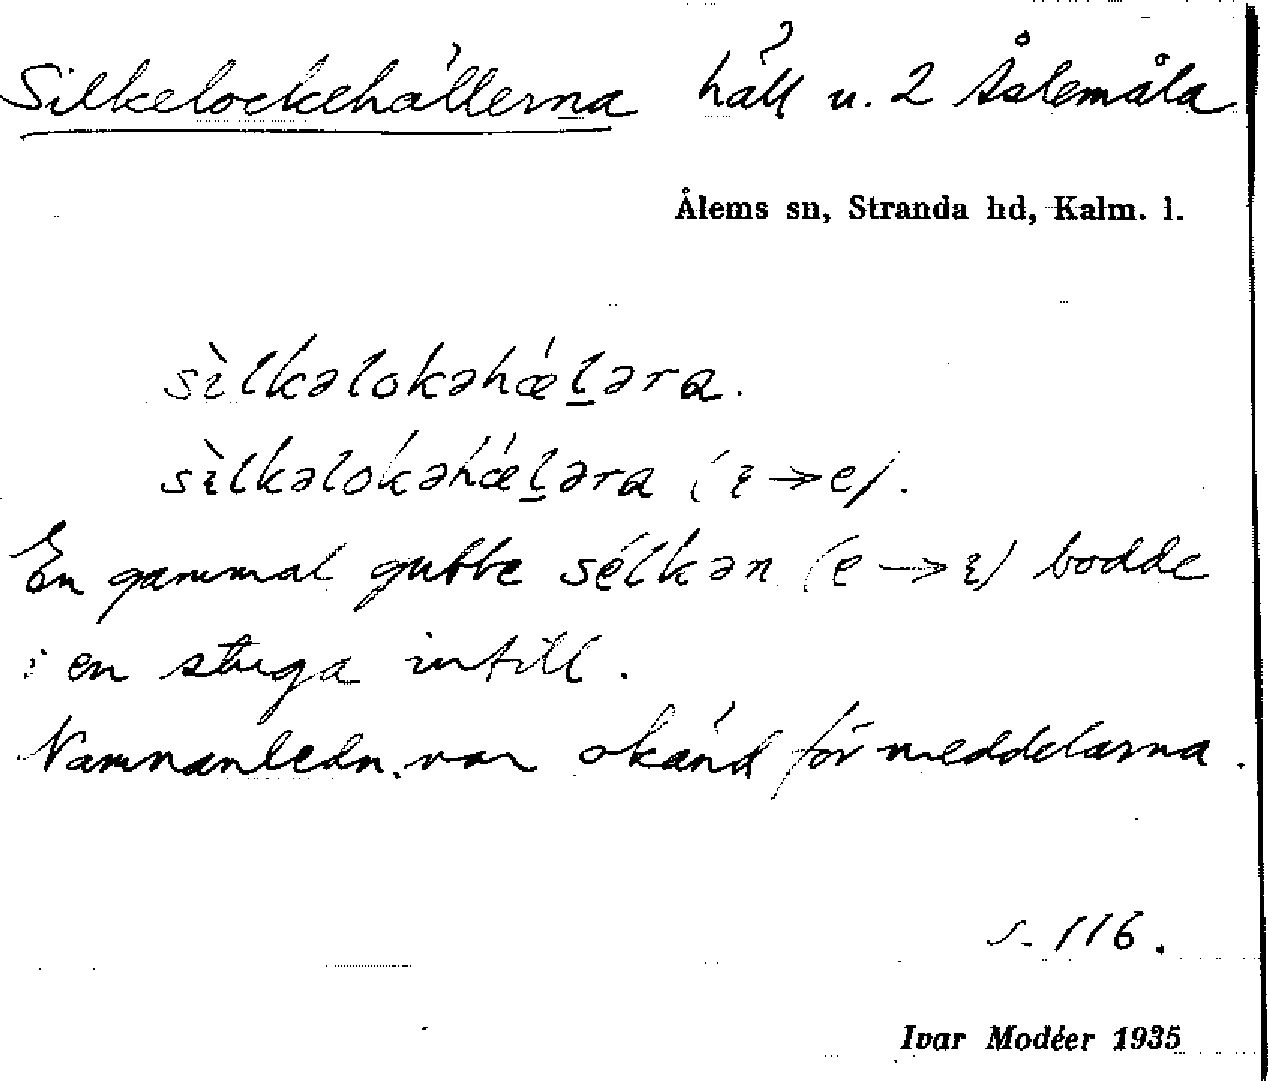 Silkelockehällerna häll u. 2 Åslemåla
Ålems sn, Stranda hd, Kalm. l.
sìlkəlokəhǽl̠əra.
sìlkəlokəhǽl̠əra (ɩ → e).
En gammal gubbe sélkən (e → ɩ) bodde
i en stuga intill.
Namnanledn. var okänd för meddelarna.
s. 116.
Ivar Modéer 1935